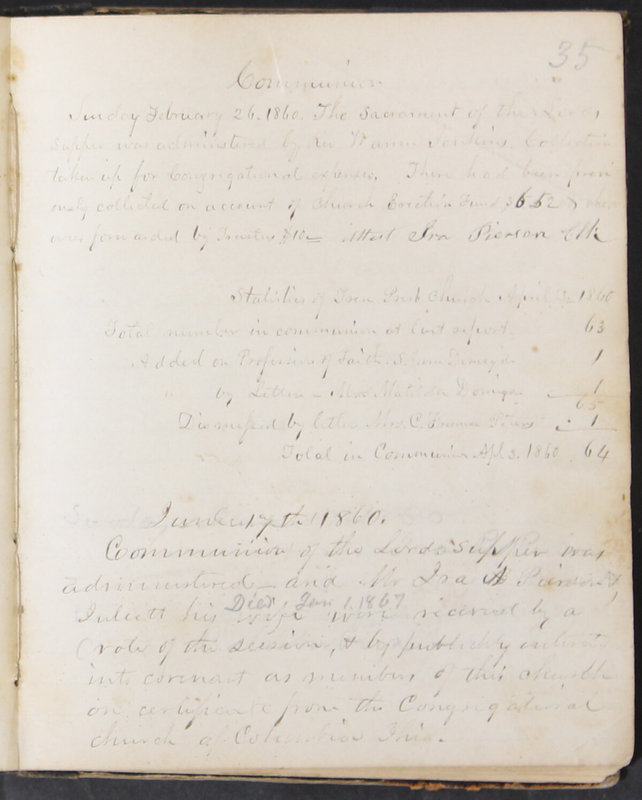 35
Communion
Sunday February 26. 1860. The Sacrament of the Lords
Supper was administered by Rev Warner Jenkins. Collection
taken up for Congregational expenses. There had been previ
ously collected on account of Church Erection Fund $6 52
over forwarded by Trustees $10— Attest Ira Pierson Clk
Statistics of Presb Church April 3. 1860
Total number in communion at last report. 63
Added on Profession of Faith. 1
" by Letter – Mrs Matilda 1
65
Dismissed by letter Mrs. C. 1
Total in Communion Apl 3. 1860 64
June 17th 1860.
Communion of the Lords Supper was
administered – and Mr Ira A Pierson &
Died Jan 1. 1867
Juliett his wife were received by a
vote of the session, & by publickly entering
into covenant as members of this church
on certificate from the Congregational
church of Columbia Ohio.